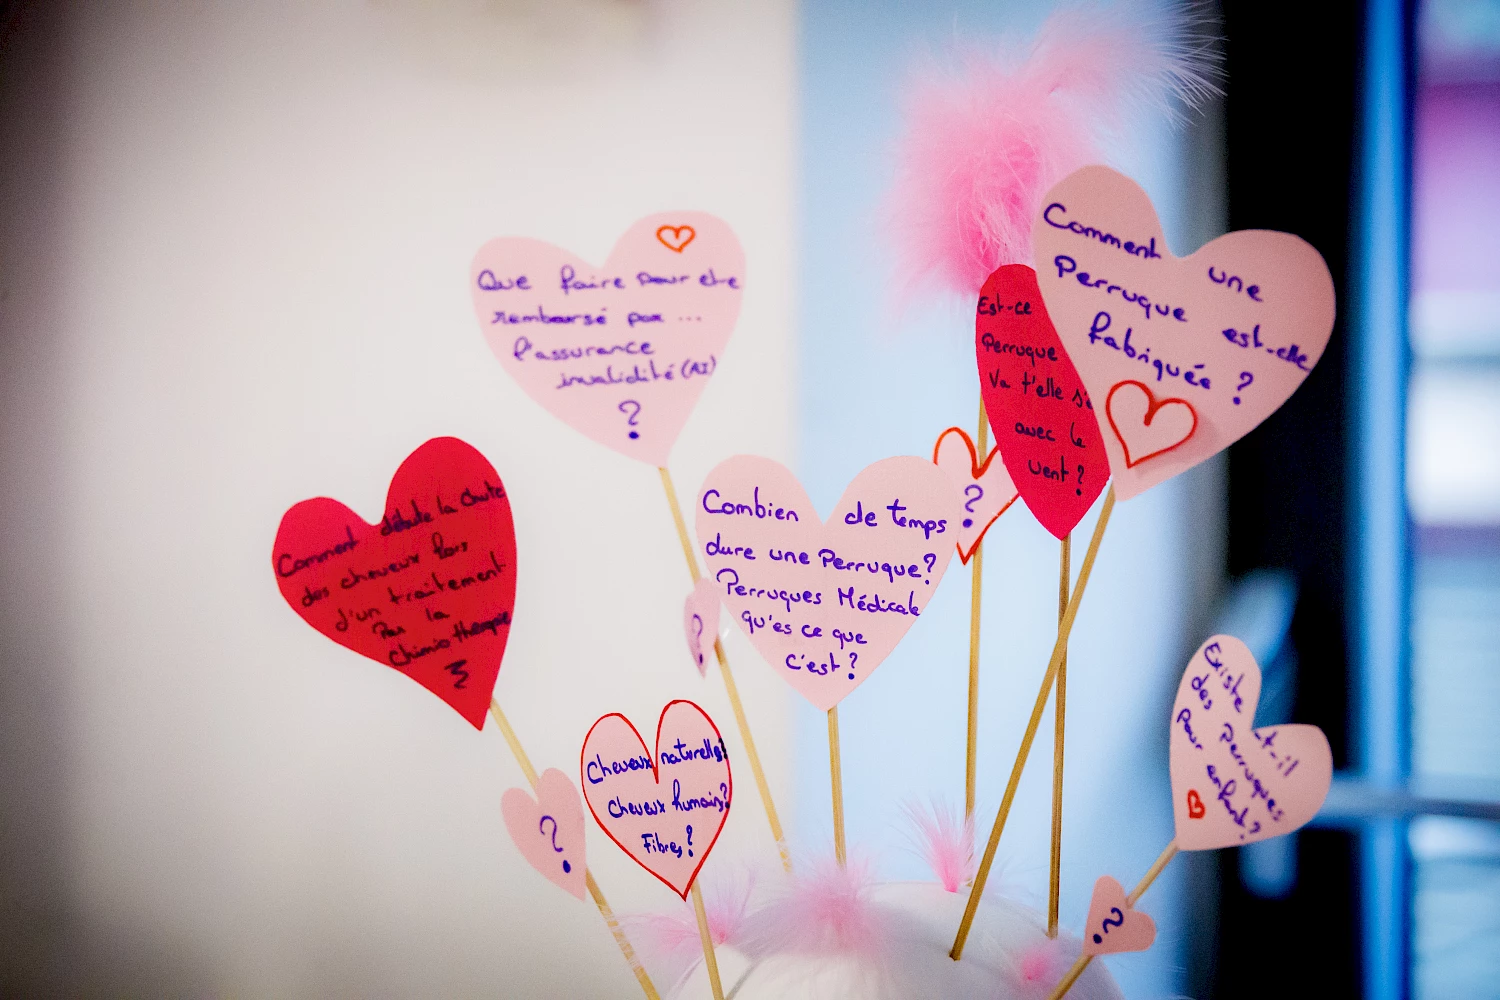 Que faire pour etre
remboursé par ...
l'assurance
invalidité (AI)
?
Comment une
Perruque est-elle
fabriquée ?
Est-ce
Perruque
Va t'elle
avec le
vent ?
?
Comment débute la chute
des cheveux lors
d'un traitement
Par la
chimiothérapie
?
Combien de temps
dure une Perruque?
Perruques Médicale
qu'es ce que
c'est ?
?
Cheveux naturelle?
Cheveux humains?
Fibres?
?
Existe t-il
des Perruques
pour enfant?
?